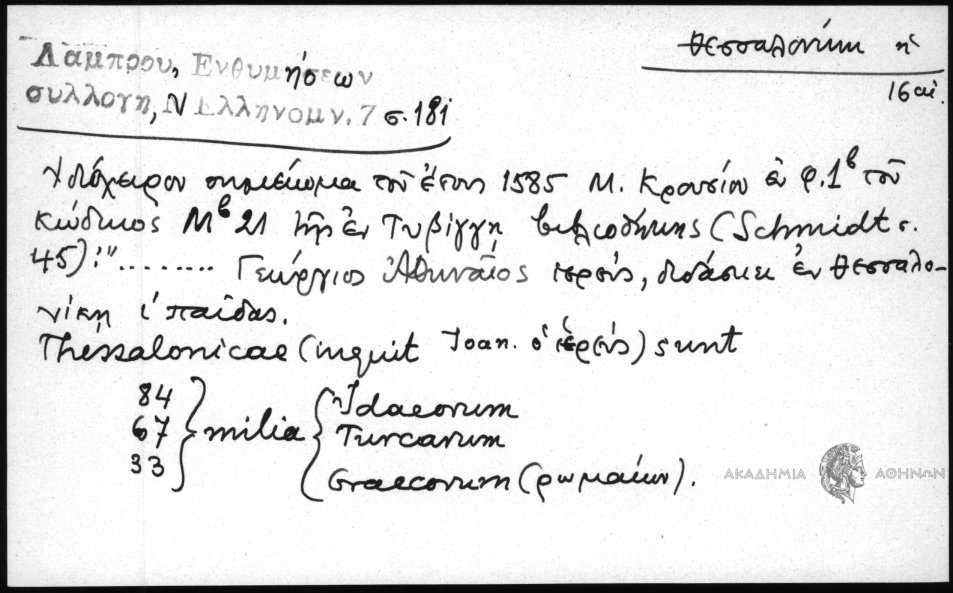 Λάμπρου, Ενθυμήσεων
συλλογη, Ν Ελληνομν. 7 σ. 181
Θεσσαλονίκη
16 αἰ.
Ἰδιόχειρον σημείωμα τοῦ ἔτους 1585 Μ. Κρουσίου ἐν φ. 1β τοῦ
κώδικος Μβ 21 τῆς ἐν Τυβίγγῃ βιβλιοθήκης (Schmidt σ.
45): "........ Γεώργιος Ἀθηναῖος ἱερεύς, διδάσκει ἐν Θεσσαλο-
νίκῃ ι΄ παῖδας.
Thessalonicae (inquit Joan. ὁ ἱερεύς) sunt
84 Idaeorum
67 milia Turcarum
33 Graecorum (ρωμαίων).
ΑΚΑΔΗΜΙΑ ΑΘΗΝΩΝ